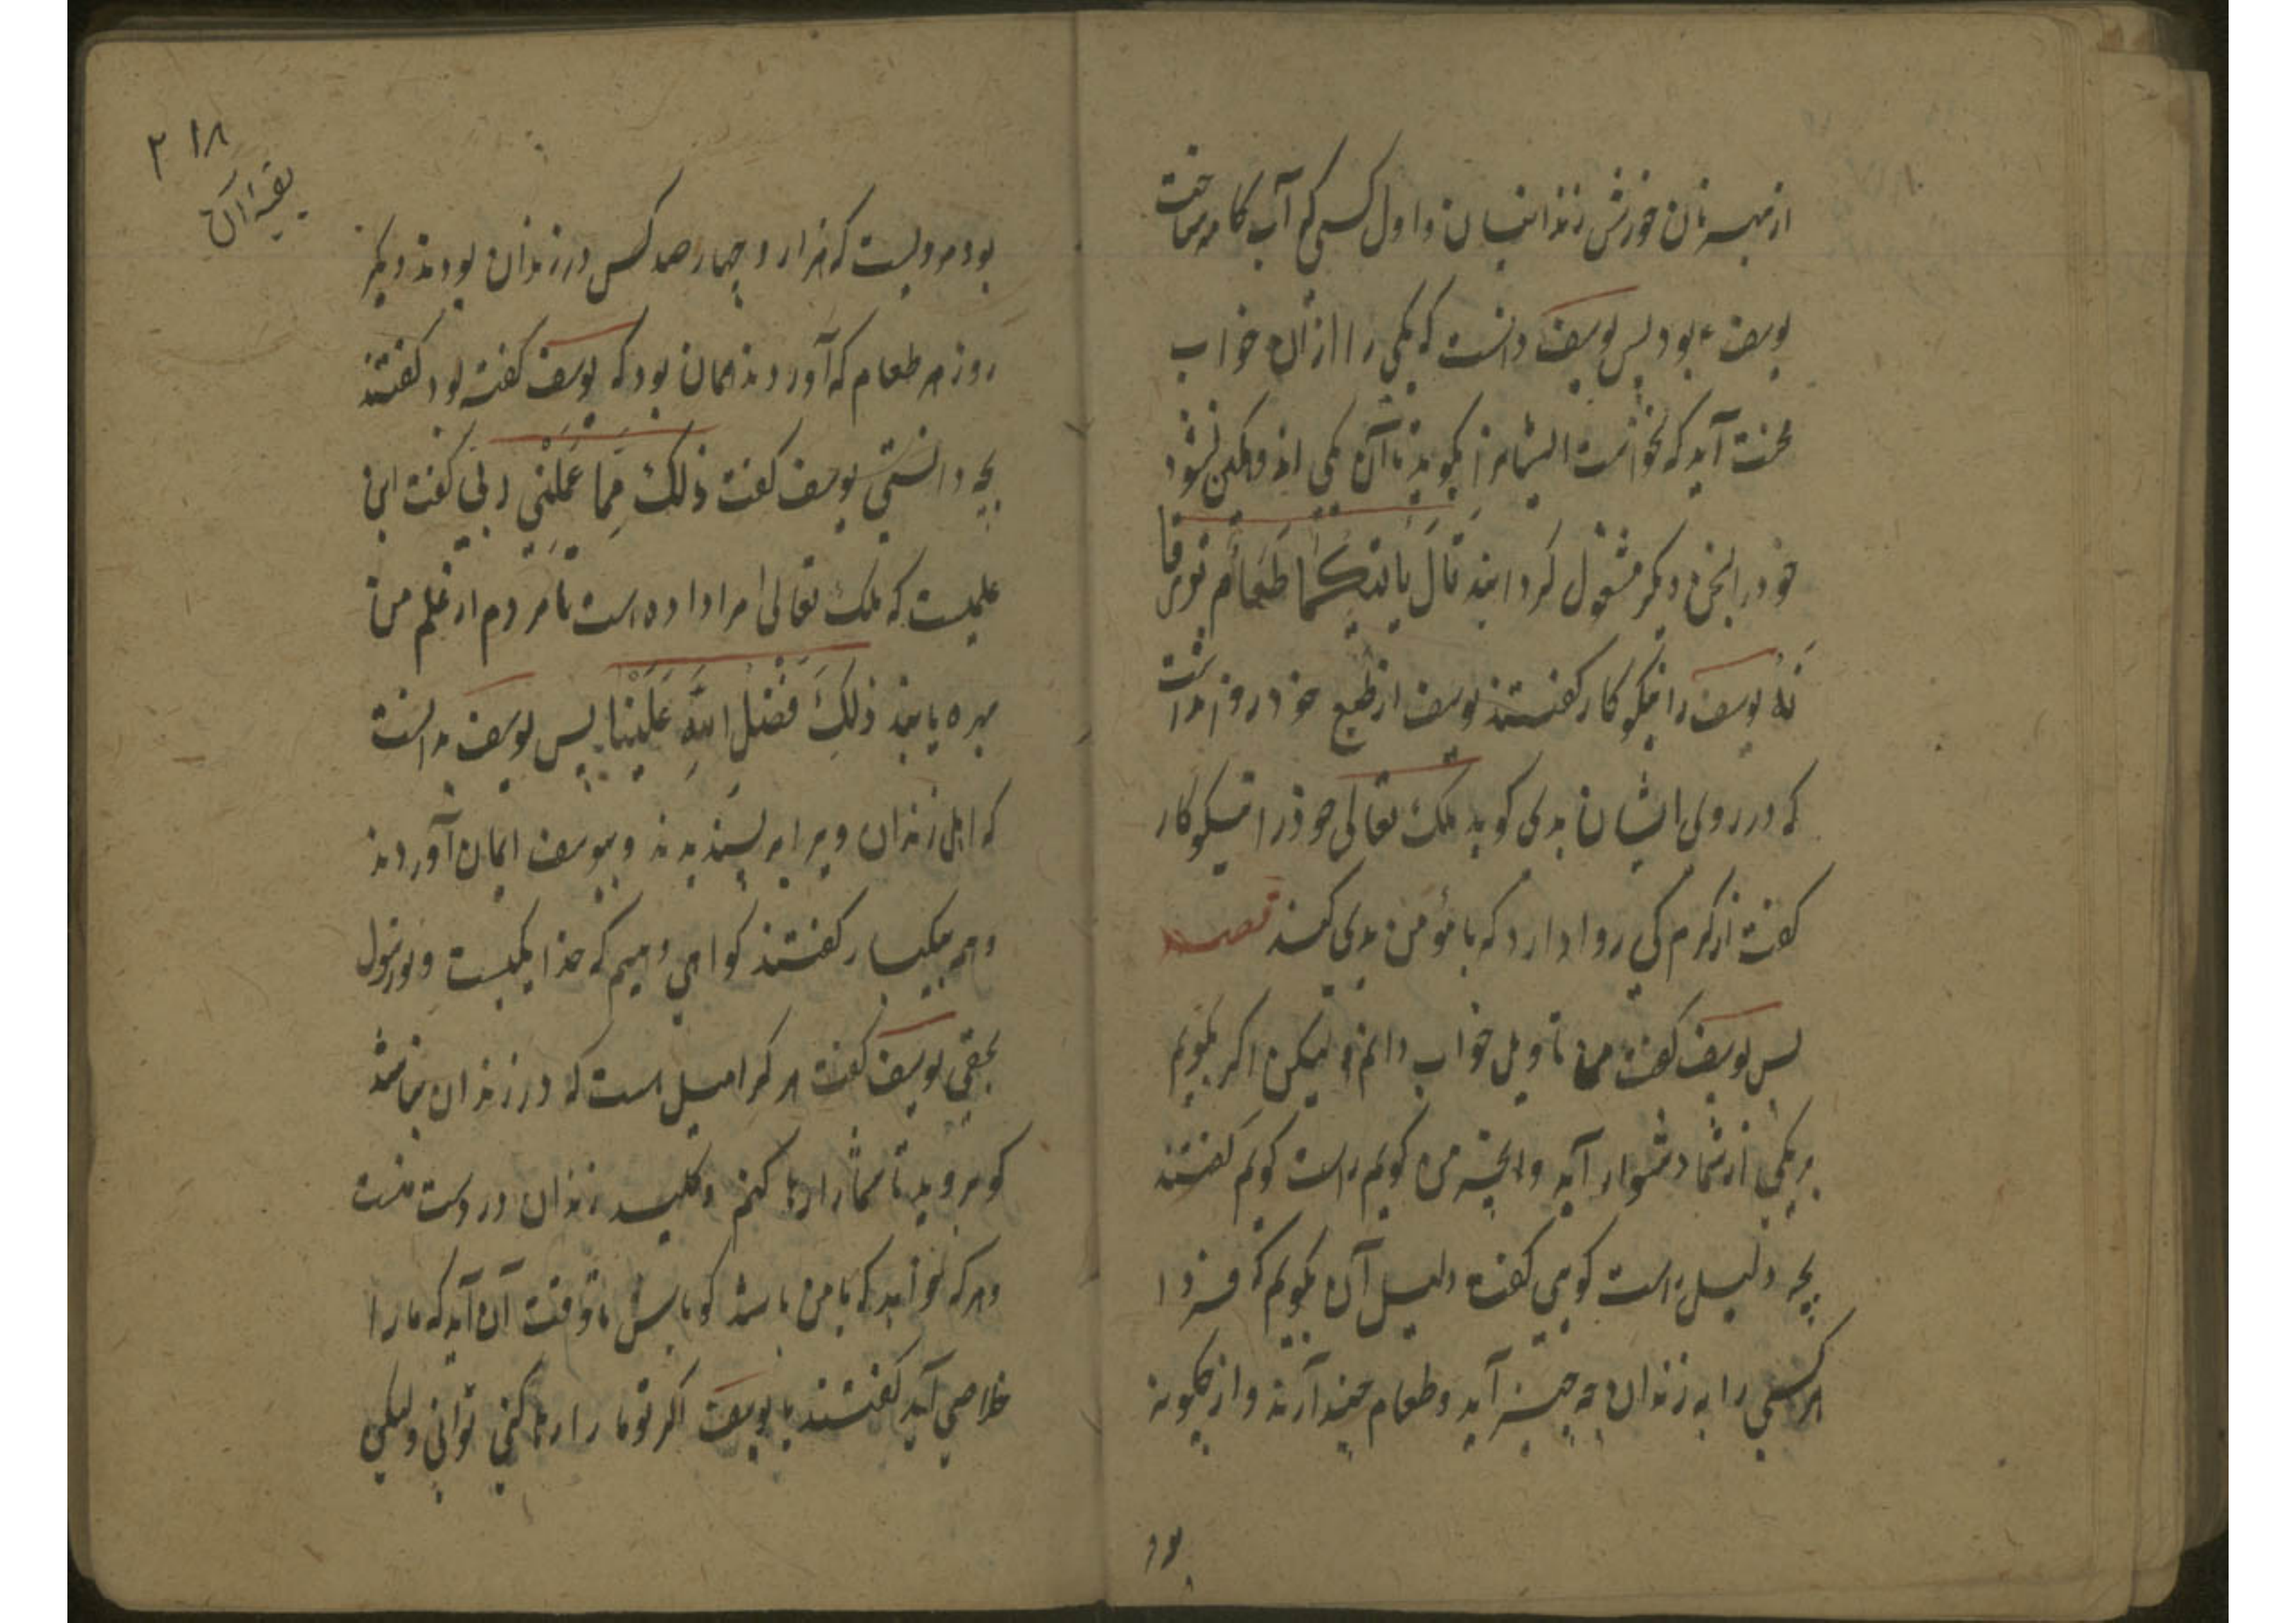 از بهر نان خورش زندانیان و اول کسی که آب کامه ساخت
یوسف ؑ بود پس یوسف دانست که یکی را از آن خواب
محنت آید که نخواست ایشانرا بگوید تا آن یکی اندوهگین نشود
خود را بسخن دیگر مشغول گردانید قَالَ لَا یَاْتِیْکُمَا طَعَامٌ تُرْزَقَا
نِهٖ یوسف را نیکوکار گفتند یوسف از طبع خود روا نداشت
که در روی ایشان بدی گوید ملک تعالی خود را نیکوکار
گفت از کرم کی روا دارد که با مؤمن بدی کند قصه
پس یوسف گفت من تاویل خواب دانم و لیکن اگر بگویم
بر یکی از شما دشوار آید و آنچه من گویم راست گویم گفتند
بچه دلیل راست گویی گفت دلیل آن بگویم که فردا
هر کسی را به زندان چه چیز آید و طعام چند آرند و از چگونه
بود
۲۱۸
بود مرویست که هزار و چهار صد کس در زندان بودند دیگر
روز هر طعام که آوردند همان بود که یوسف گفته بود گفتند
بچه دانستی یوسف گفت ذٰلِکَ مِمَّا عَلَّمَنِیْ رَبِّی گفت این
علمیست که ملک تعالی مرا داده است تا مردم از علم من
بهره یابند ذٰلِکَ فَضْلُ اللّٰهِ عَلَیْنَا پس یوسف بدانست
که اهل زندان ویرا به پسندیدند و بیوسف ایمان آوردند
و همه بیکبار گفتند گواهی دهیم که خدا یکیست و تو رسول
بحقی یوسف گفت هر کرا میل است که در زندان نباشد
گو بروید تا شما را رها کنم و کلید زندان در دست منست
و هر که خواهد که با من باشد گو باش تا وقت آن آید که ما را
خلاصی آید گفتند یا یوسف اگر تو ما را رها کنی توانی و لیکن